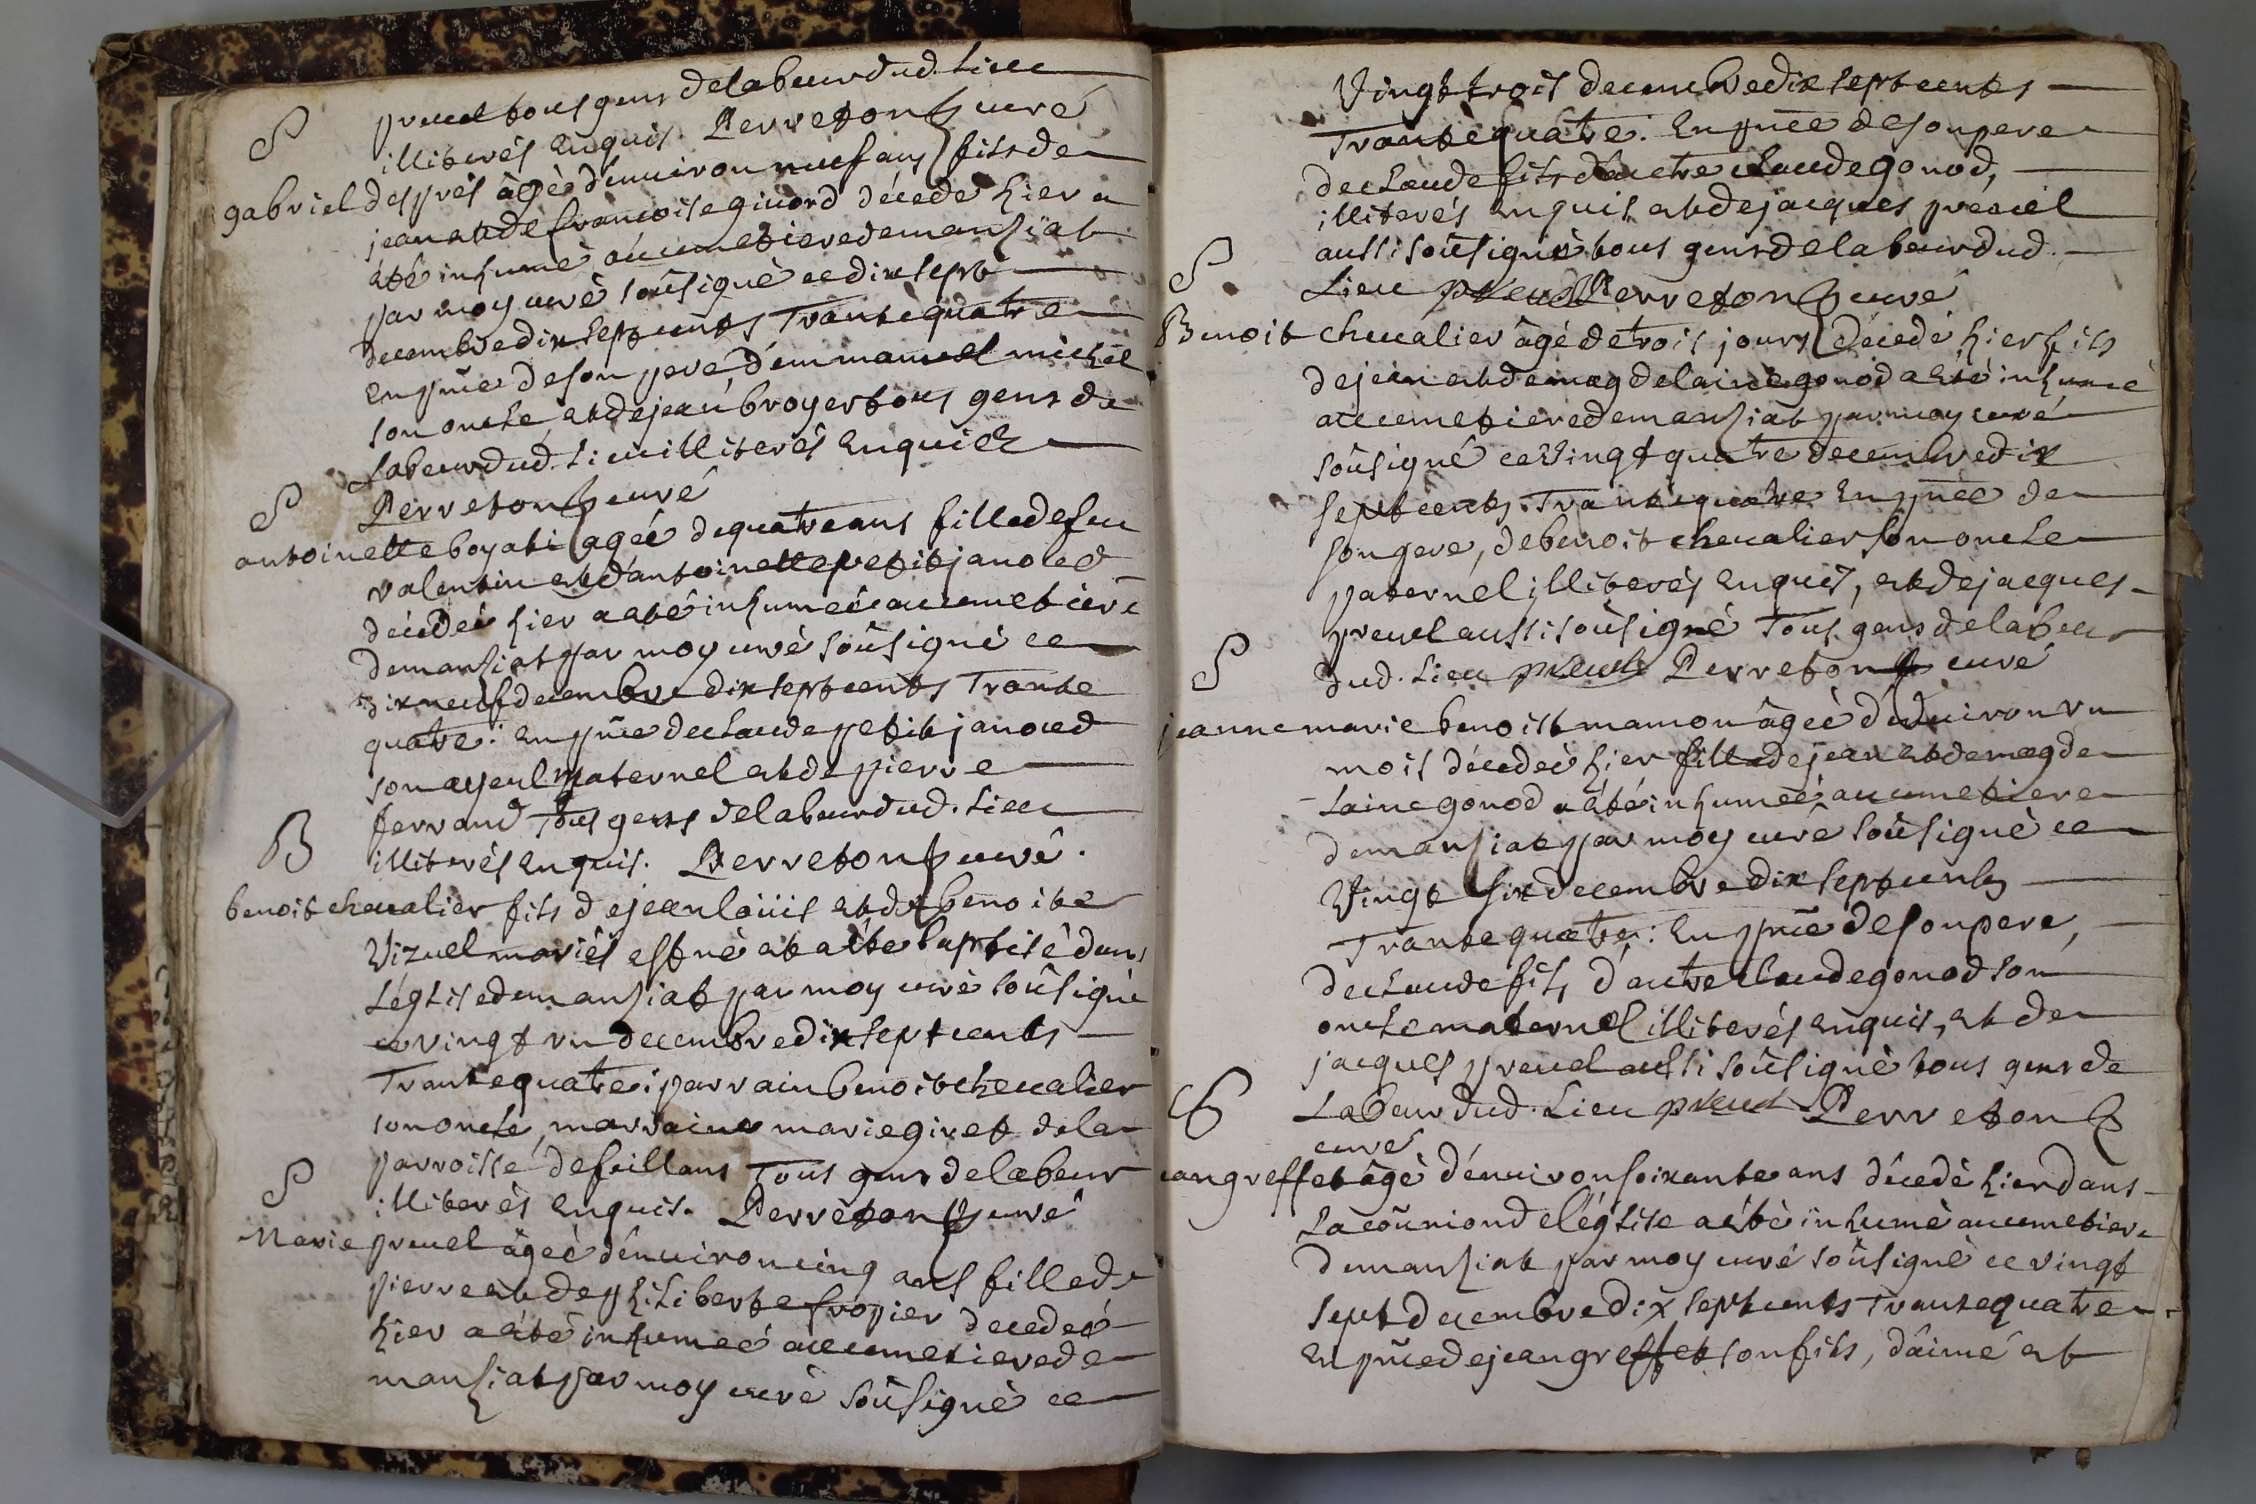 preuel tous gens de labeur dud. Lieu
S
illiterés enquis. Perreton curé
gabriel després âgé d'enuiron neuf ans fils de
jean et de francoise giuord décedé hier a
été inhumé au cimetiere de manziat
par moy curé soûsigné ce dix sept
decembre dix sept cents Trante quatre
en pñce de son pere, d'emmanuel michel
son oncle, et de jean broyer tous gens de
Labeur dud. Lieu illiterés enquis
S
Perreton curé
antoinette boyati agée de quatre ans fille de feu
valentin et d'antoinette petitjanoed
décedeé hier a eté inhumeé au cimetiere
de manziat par moy curé soûsigné ce
dix neuf decembre dix sept cents Trante
quatre: en pñce de claude petit janoued
son ayeul maternel et de pierre
ferrand Tous gens de labeur dud. Lieu
B
illiterés enquis. Perreton curé.
benoit cheualier fils de jean loüis et de benoite
Vizuel mariés est né et a eté baptisé dans
L'églize de manziat par moy curé soûsigné
ce vingt vn decembre dix sept cents
Trante quatre: parrain benoit cheualier
son oncle, marraine marie giret de la
parroisse de feillans Tous gens de labeur
S
illiterés enquis. Perreton curé
Marie preuel âgeé d'enuiron cinq ans fille de
pierre et de philiberte fropier decedeé
hier a eté inhumeé au cimetiere de
manziat par moy curé soûsigné ce
Vingt trois decembre dix sept cents
Trante quatre: en pñce de son pere
de claude fils d'autre claude gonod,
illiterés enquis, et de jacques preuel
aussi soûsigné tous gens de labeur dud.
S
Lieu preuel Perreton curé
Benoit cheualier âgé de trois jours décedé hier fils
de jean et de magdelaine gonod a eté inhumé
au cimetiere de manziat par moy curé
soûsigné ce Vingt quatre decembre dix
sept cents Trante quatre en pñce de
son pere, de benoit cheualier son oncle
paternel illiterés enquis, et de jacques
preuel aussi soûsigné Tous gens de labeur
S
dud. Lieu preuel Perreton curé
jeanne marie benoist mamon âgeé d'enuiron vn
mois décedeé hier fille de jean et de magde
Laine gonod a eté inhumeé au cimetiere
de manziat par moy curé soûsigné ce
Vingt six decembre dix sept cents
Trante quatre: en pñce de son pere,
de claude fils d'autre claude gonod son
oncle maternel illiterés enquis, et de
jacques preuel aussi soûsigné tous gens de
S
Labeur dud. Lieu preuel Perreton
curé
jean greffet âgé d'enuiron soixante ans décedé hier dans
La com̃union de l'églize a eté inhumé au cimetiere
de manziat par moy curé soûsigné ce vingt
sept decembre dix sept cents Trante quatre
en pñce de jean greffet son fils, d'aimé et